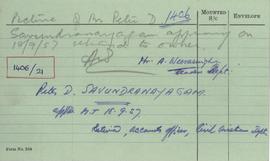 Picture of Mr Peter D. 1406
Savundranayagam appearing on
18/9/57 returned to owner.
MOUNTED
S/C
ENVELOPE
Mr. A. Weerasinghe
Dept.
1406/21
Peter D. SAVUNDRANAYAGAM.
MT 18-9-57
Retired, accounts officer, Civil Aviation Dept.
Form No. 206